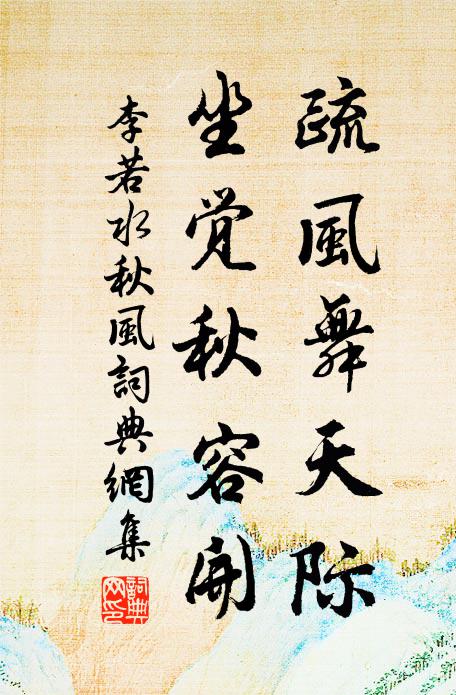 疏風舞天際
坐覺秋容開
李若水秋風詞典網集
詞典网印